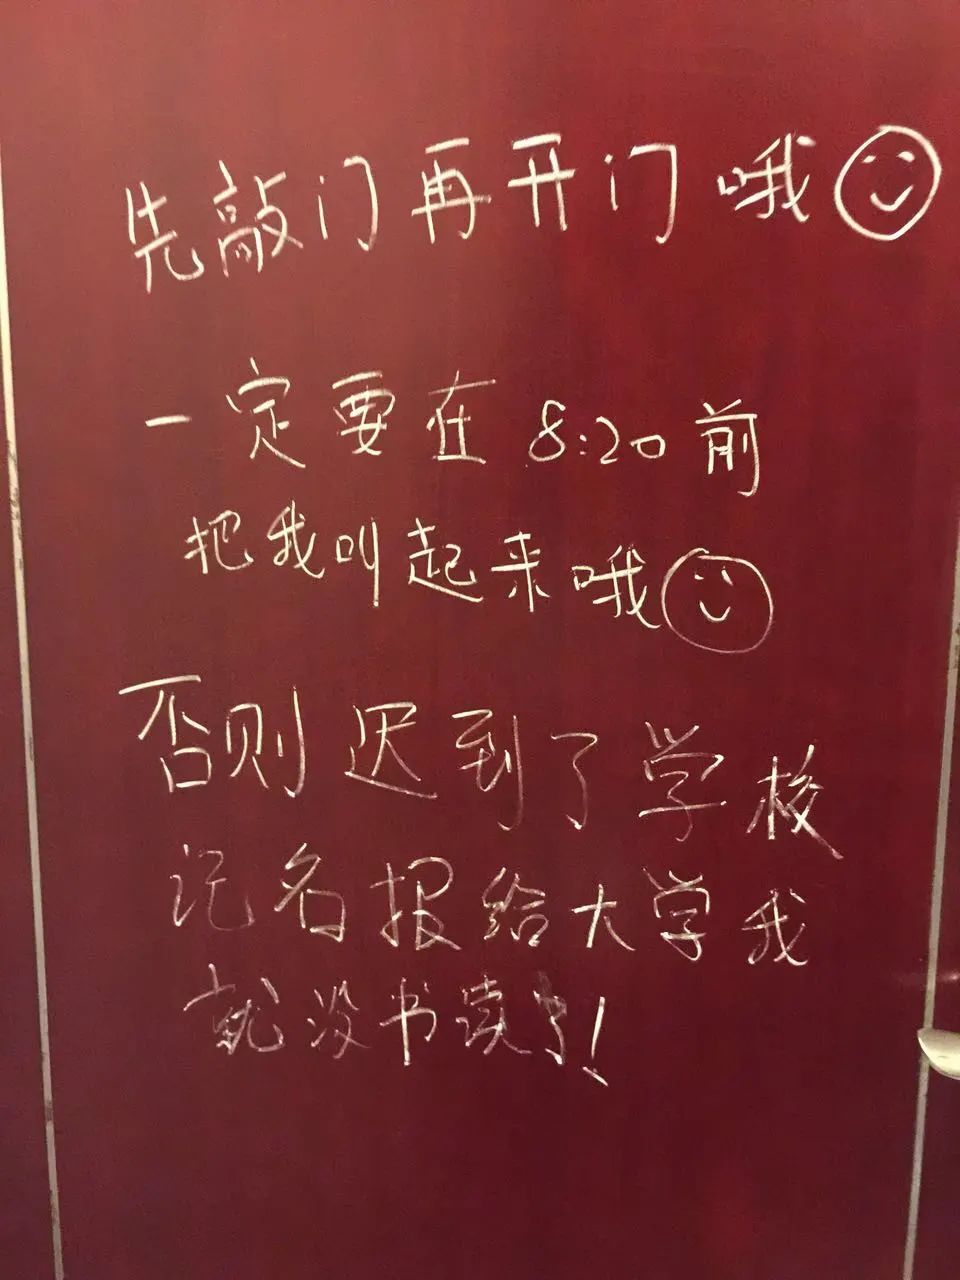 先敲门再开门哦
一定要在8:20前
把我叫起来哦
否则迟到了学校
记名报给大学我
就没书读了!